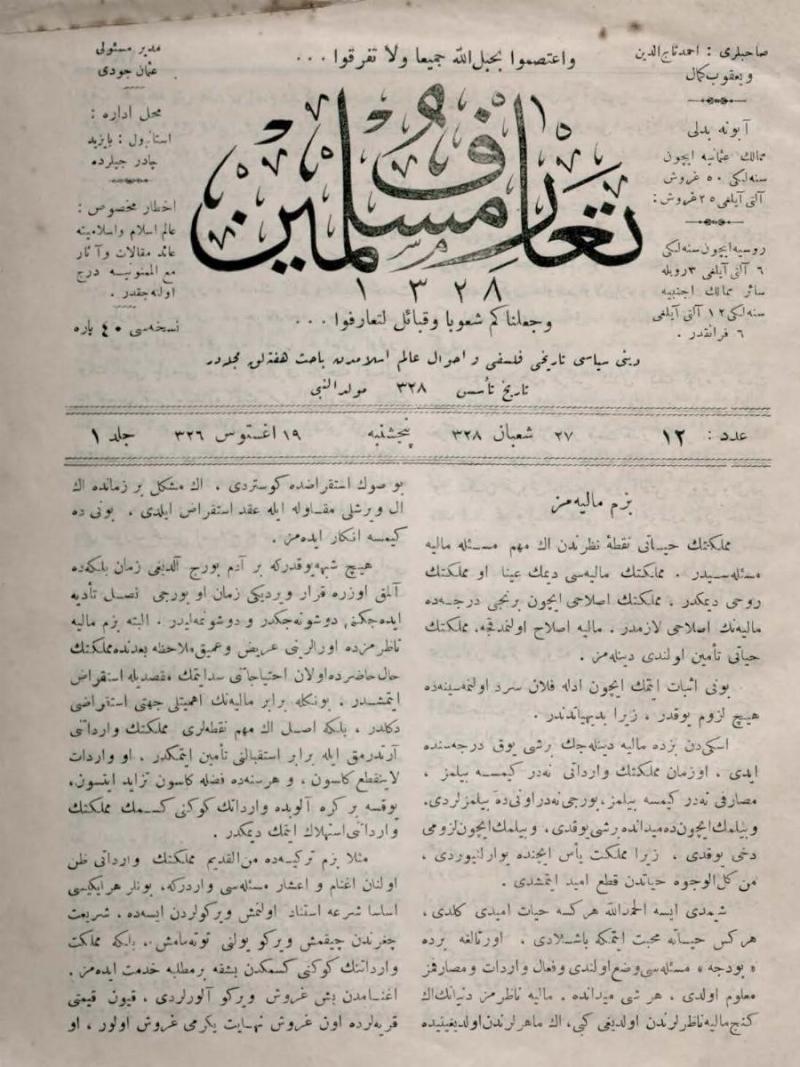 واعتصموا بحبل الله جميعا ولا تفرقوا . . .
صاحبلری : احمد تاج الدین
و یعقوب کمال
آبونه بدلی
ممالك عثمانیه ایچون
سنه لکی ٥٠ غروش
آلتی آیلغی ٢٥ غروش :
روسیه ایچون سنه لکی
٦ آلتی آیلغی ٣ روبله
سائر ممالك اجنبیه
سنه لکی ١٢ آلتی آیلغی
٦ فرانقدر .
مدیر مسئولی
عثمان جودی
محل اداره :
استانبول : بایزید
چادرجیلرده
اخطار مخصوص :
عالم اسلام و اسلامیته
عائد مقالات و آثار
مع الممنونیه درج
اولنه جقدر .
نسخه سی ٤٠ پاره
تعارف مسلمین
١٣٢٨
وجعلناکم شعوبا وقبائل لتعارفوا . . .
دینی سیاسی تاریخی فلسفی و احوال عالم اسلامدن باحث هفته لق مجله در
تاریخ تأسیس ٣٢٨ مولد النبی
عدد : ١٢ ٢٧ شعبان ٣٢٨ پنجشنبه ١٩ اغستوس ٣٢٦ جلد ١
بزم مالیه مز
مملکتك حیاتی نقطهٔ نظرندن اك مهم مسئله مالیه
مسئله سیدر . مملکتك مالیه سی دیمك عینا او مملکتك
روحی دیمکدر . مملکتك اصلاحی ایچون برنجی درجه ده
مالیه نك اصلاحی لازمدر . مالیه اصلاح اولنمدقجه، مملکتك
حیاتی تأمین اولندی دینله مز .
بونی اثبات ایتمك ایچون ادله فلان سرد اولنمه سینه ده
هیچ لزوم یوقدر ، زیرا بدیهیاتدندر .
اسکیدن بزده مالیه دینله جك بر شی یوق درجه سنده
ایدی . اوزمان مملکتك وارداتی نه در کیمسه بیلمز ،
مصارفی نه در کیمسه بیلمز ، بورجی نه در اونی ده بیلمزلردی.
و بیلمك ایچون ده میدانده بر شی یوقدی ، و بیلمك ایچون لزومی
دخی یوقدی . زیرا مملکت یأس ایچنده یوارلنیوردی ،
من کل الوجوه حیاتدن قطع امید ایتمشدی .
شیمدی ایسه الحمدلله هرکسه حیات امیدی کلدی ،
هرکس حیاته محبت ایتمکه باشلادی . اورتالغه برده
« بودجه » مسئله سی وضع اولندی و فعال واردات و مصارفمز
معلوم اولدی ، هر شی میدانده . مالیه ناظرمز دنیانك اك
کنج مالیه ناظرلرندن اولدیغی کبی، اك ماهرلرندن اولدیغینیده
بو صوك استقراضده کوستردی . اك مشکل بر زمانده اك
ال ویرشلی مقاوله ایله عقد استقراض ایلدی . بونی ده
کیمسه انکار ایده مز .
هیچ شبهه یوقدرکه بر آدم بورج آلدیغی زمان بلکه ده
آلمق اوزره قرار ویردیکی زمان او بورجی نصل تأدیه
ایده جکنی دوشونه جکدر و دوشونملیدر . البته بزم مالیه
ناظرمزده اورالرینی عریض و عمیق ملاحظه بعدنده مملکتك
حال حاضرده اولان احتیاجاتی سد ایتمك مقصدیله استقراض
ایتمشدر . بونکله برابر مالیه نك اهمیتلی جهتی استقراضی
دکلدر ، بلکه اصل اك مهم نقطه لری مملکتك وارداتی
آرتدرمق ایله برابر استقبالنی تأمین ایتمکدر . او واردات
لاینقطع کلسون ، و هر سنه ده فضله کلسون تزاید ایتسون،
یوقسه بر کره آلوبده وارداتك کوکنی کسمك مملکتك
وارداتی استهلاك ایتمك دیمکدر .
مثلا بزم ترکیه ده من القدیم مملکتك وارداتی ظن
اولنان اغنام و اعشار مسئله سی واردرکه، بونلر هر ایکیسی
اساسا شرعه استناد اولنمش ویرکولردن ایسه ده ، شریعت
چغرندن چیقمش ویرکو یولی تونه مامش ، بلکه مملکت
وارداتنك کوکنی کسمکدن بشقه بر مطلبه خدمت ایده مز .
اغنامدن بش غروش ویرکو آلورلردی ، قیون قیمتی
قریه لرده اون غروش نهایت یکرمی غروش اولور ، او